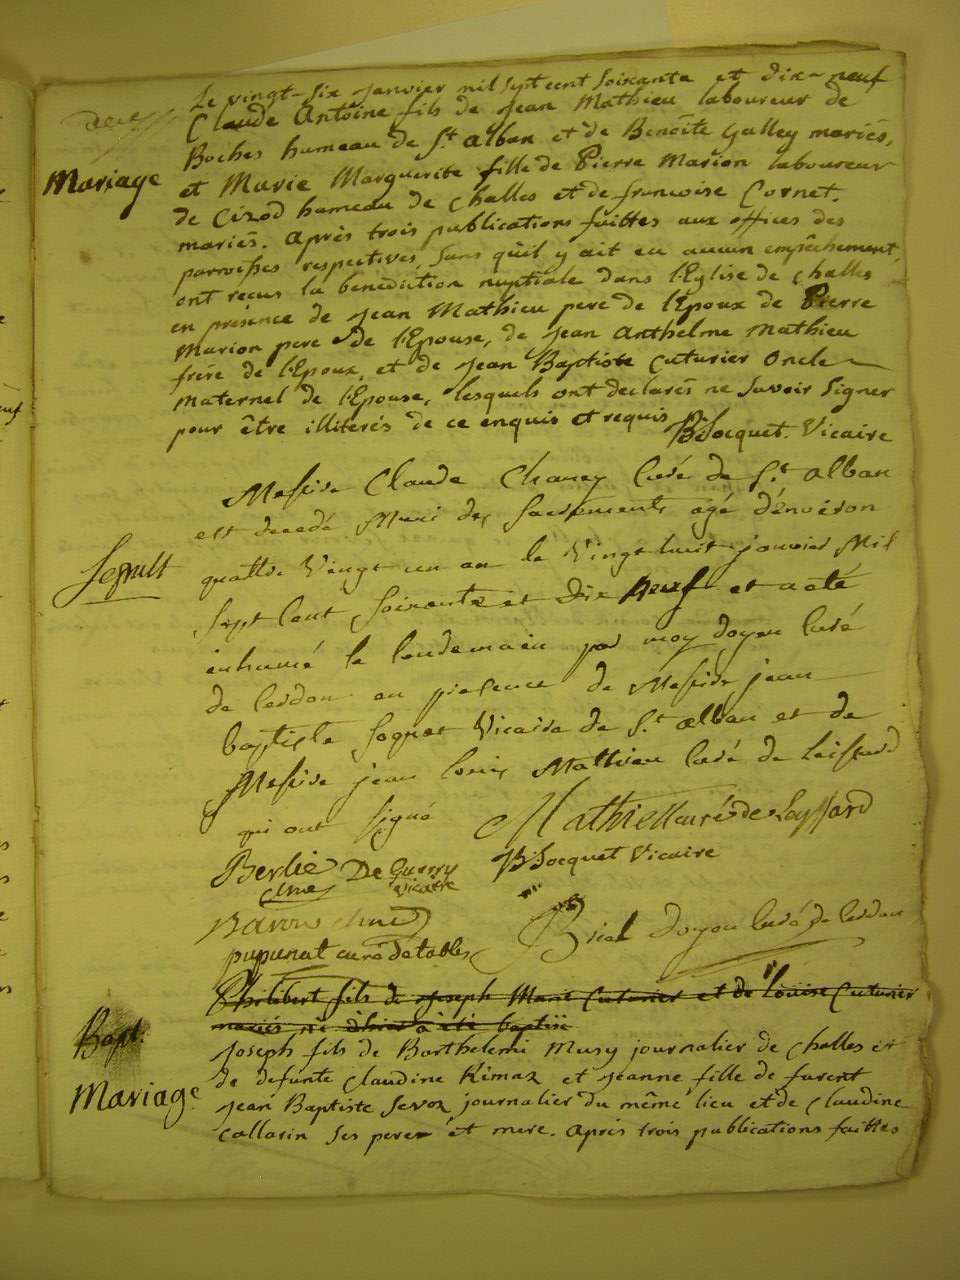 Mariage
Le vingt-six janvier mil sept cent soixante et dix-neuf
Claude Antoine fils de jean Mathieu laboureur de
Boches hameau de St. alban et de Benoîte Galley mariés,
et Marie Marguerite fille de Pierre Marion laboureur
de Cizod hameau de challes et de francoise Cornet.
mariés. après trois publications faittes aux offices des
parroisses respectives, sans qu'il y ait eu aucun empêchement,
ont recus la benediction nuptiale dans l'Eglise de challes
en présence de jean Mathieu pere de l'Epoux de Pierre
Marion pere de l'Epouse, de jean anthelme Mathieu
frère de l'Epoux, et de jean Baptiste Cuturier Oncle
Maternel de l'Epouse, lesquels ont declarés ne savoir signer
pour être illiterés de ce enquis et requis BSocquet. Vicaire
Sepult
Messire Claude Charcy Curé de St. alban
est decedé Muni des sacrements agé d'environ
quattre Vingt un an le Vingt huit janvier Mil
sept Cent soixante et dix neuf et a eté
inhumé le lendemain par moy doyen Curé
de Cerdon en presence de Messire jean
baptiste soquet Vicaire de St. alban et de
Messire jean louis Mathieu Curé de Leissard
qui ont signé
Mathieu curé de Leyssard
Berlie De Guerry
vicaire
BSocquet Vicaire
Baron
pupunat curé detables
Brial Doyen Curé de Cerdon
Philibert fils de joseph Marie Cuturier et de loüise Cuturier
mariés, né à été baptisé
Bapt.
Mariage
Joseph fils de Barthelemi Musy journalier de challes et
de defunte claudine Rimaz et jeanne fille de furent
jean Baptiste Savoz journalier du même lieu et de claudine
Callarin ses peres et mere. après trois publications faittes